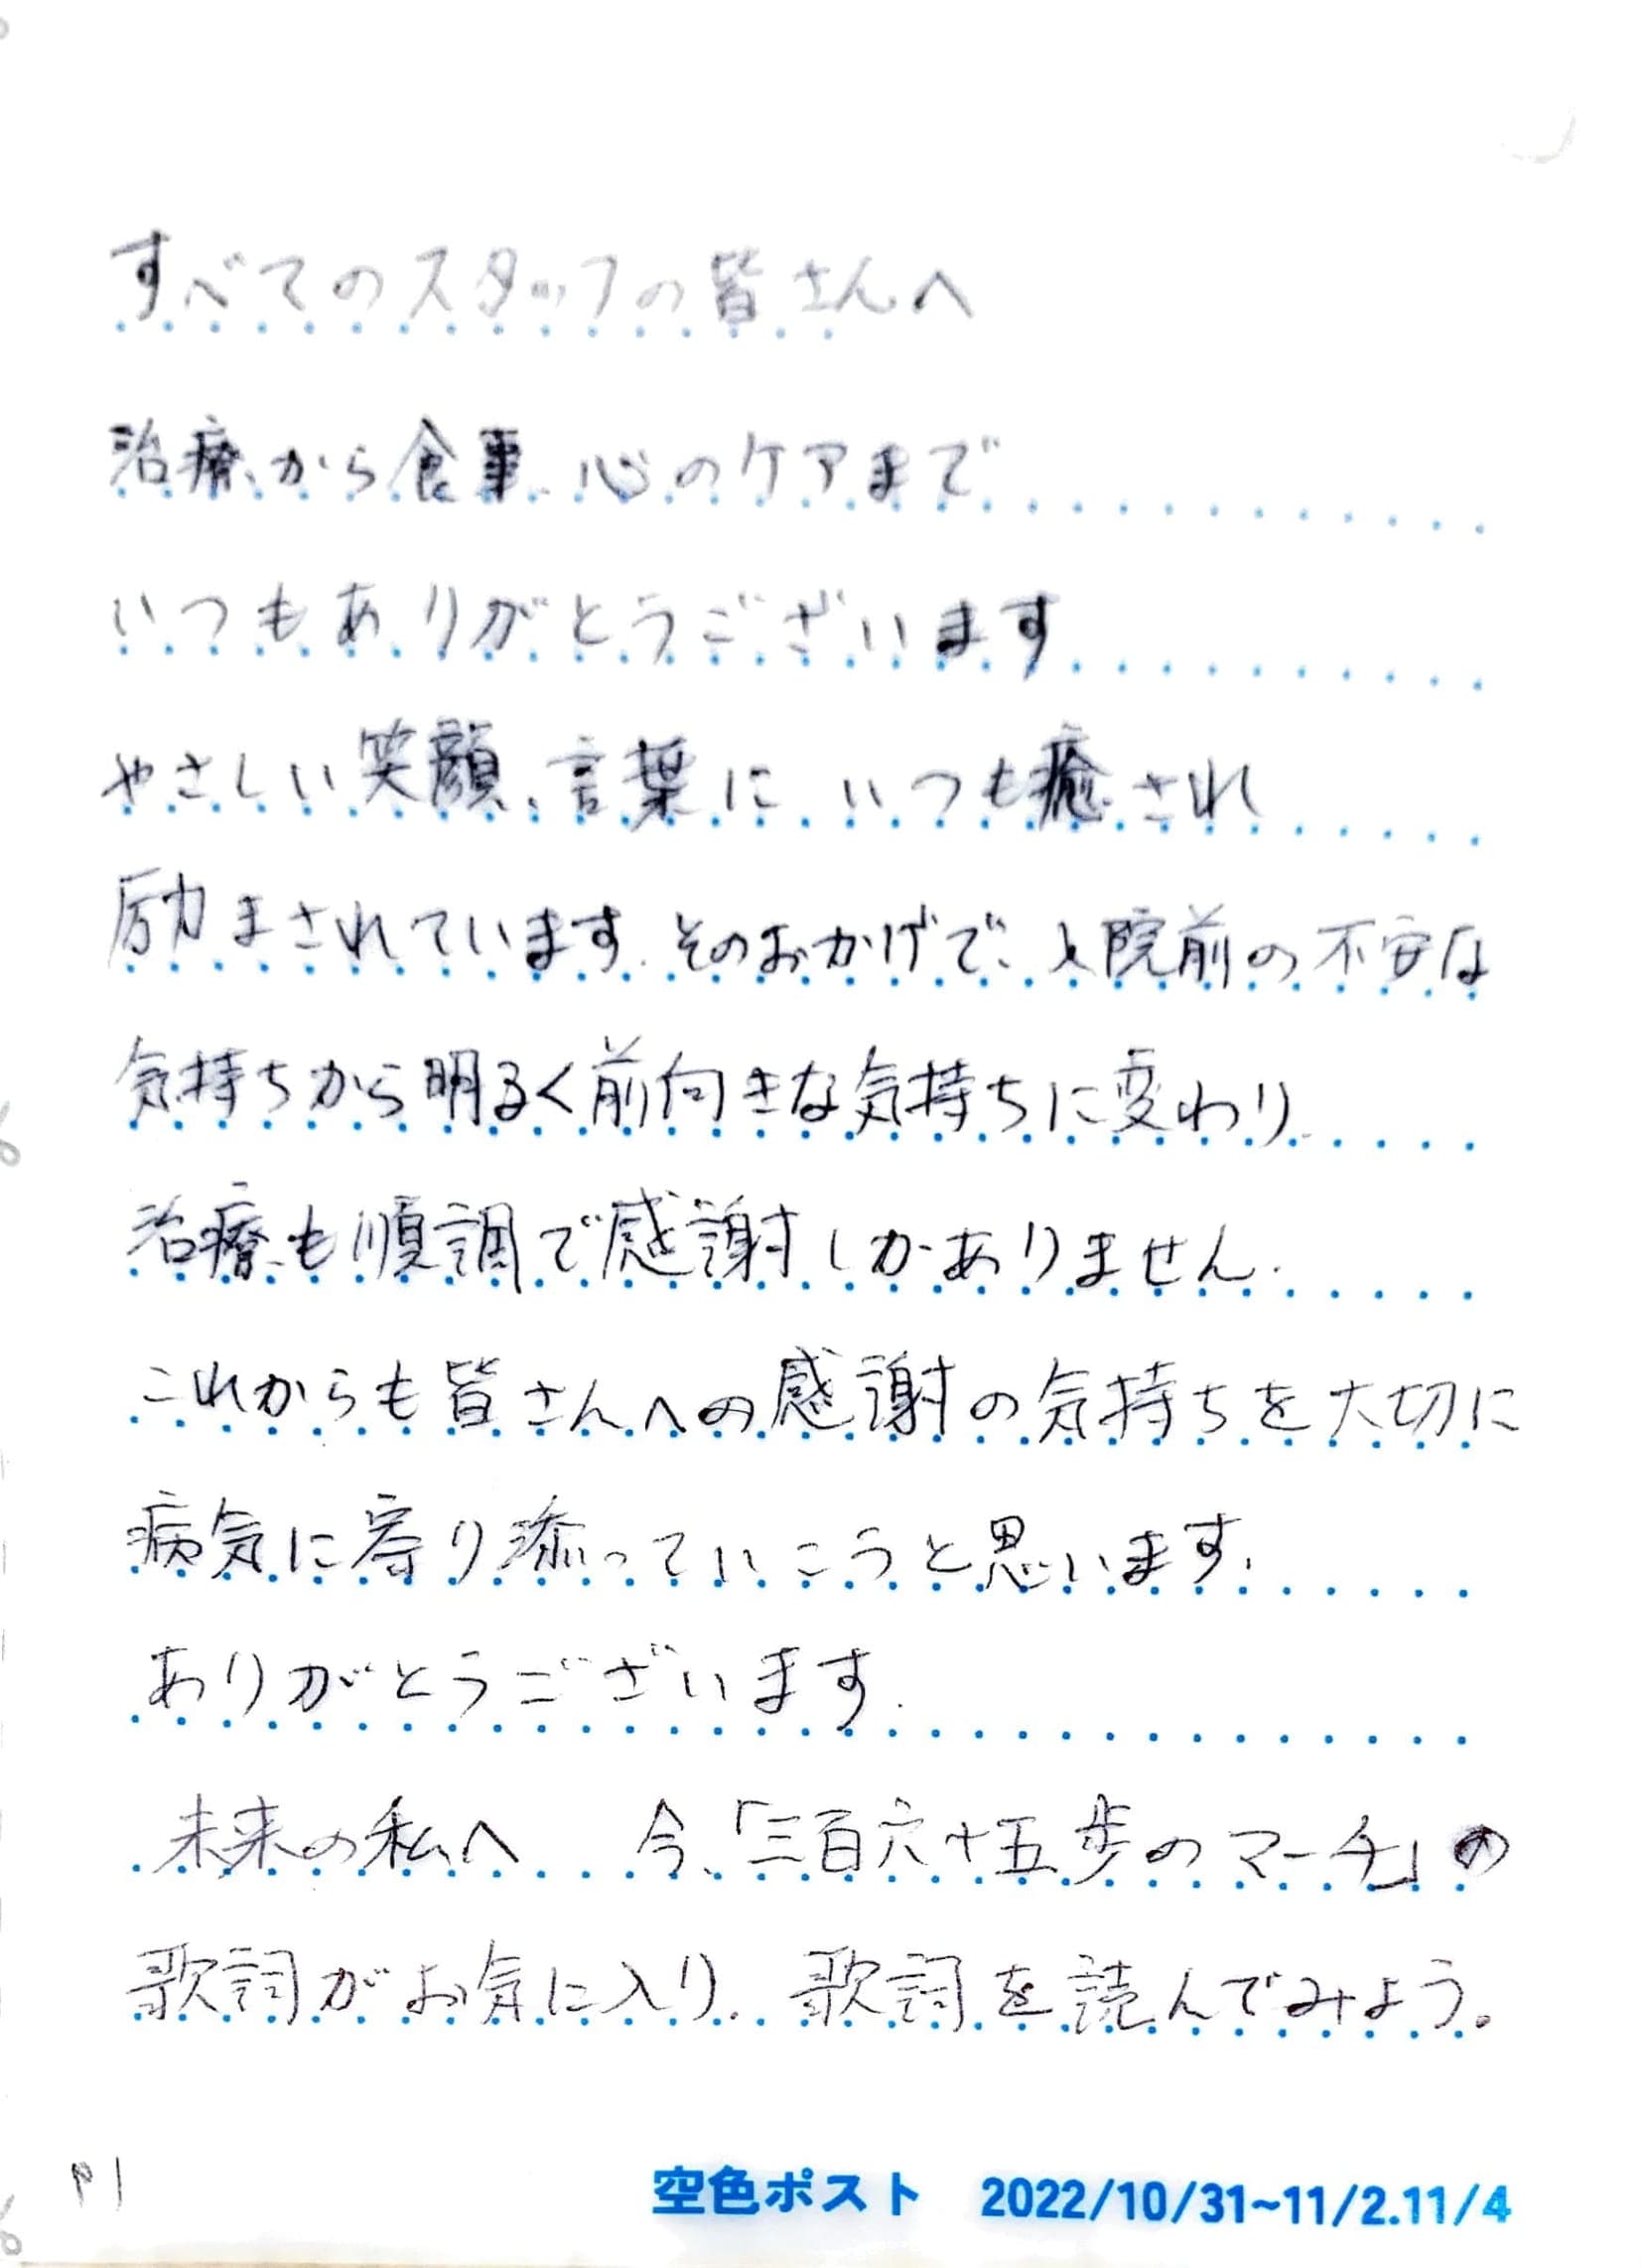 すべてのスタッフの皆さんへ
治療から食事、心のケアまで
いつもありがとうございます
やさしい笑顔、言葉に いつも癒され
励まされています。そのおかげで、入院前の不安な
気持ちから明るく前向きな気持ちに変わり
治療も順調で感謝しかありません。
これからも皆さんへの感謝の気持ちを大切に
病気に寄り添っていこうと思います。
ありがとうございます。
未来の私へ 今、「三百六十五歩のマーチ」の
歌詞がお気に入り。歌詞を読んでみよう。
P1
空色ポスト 2022/10/31~11/2.11/4